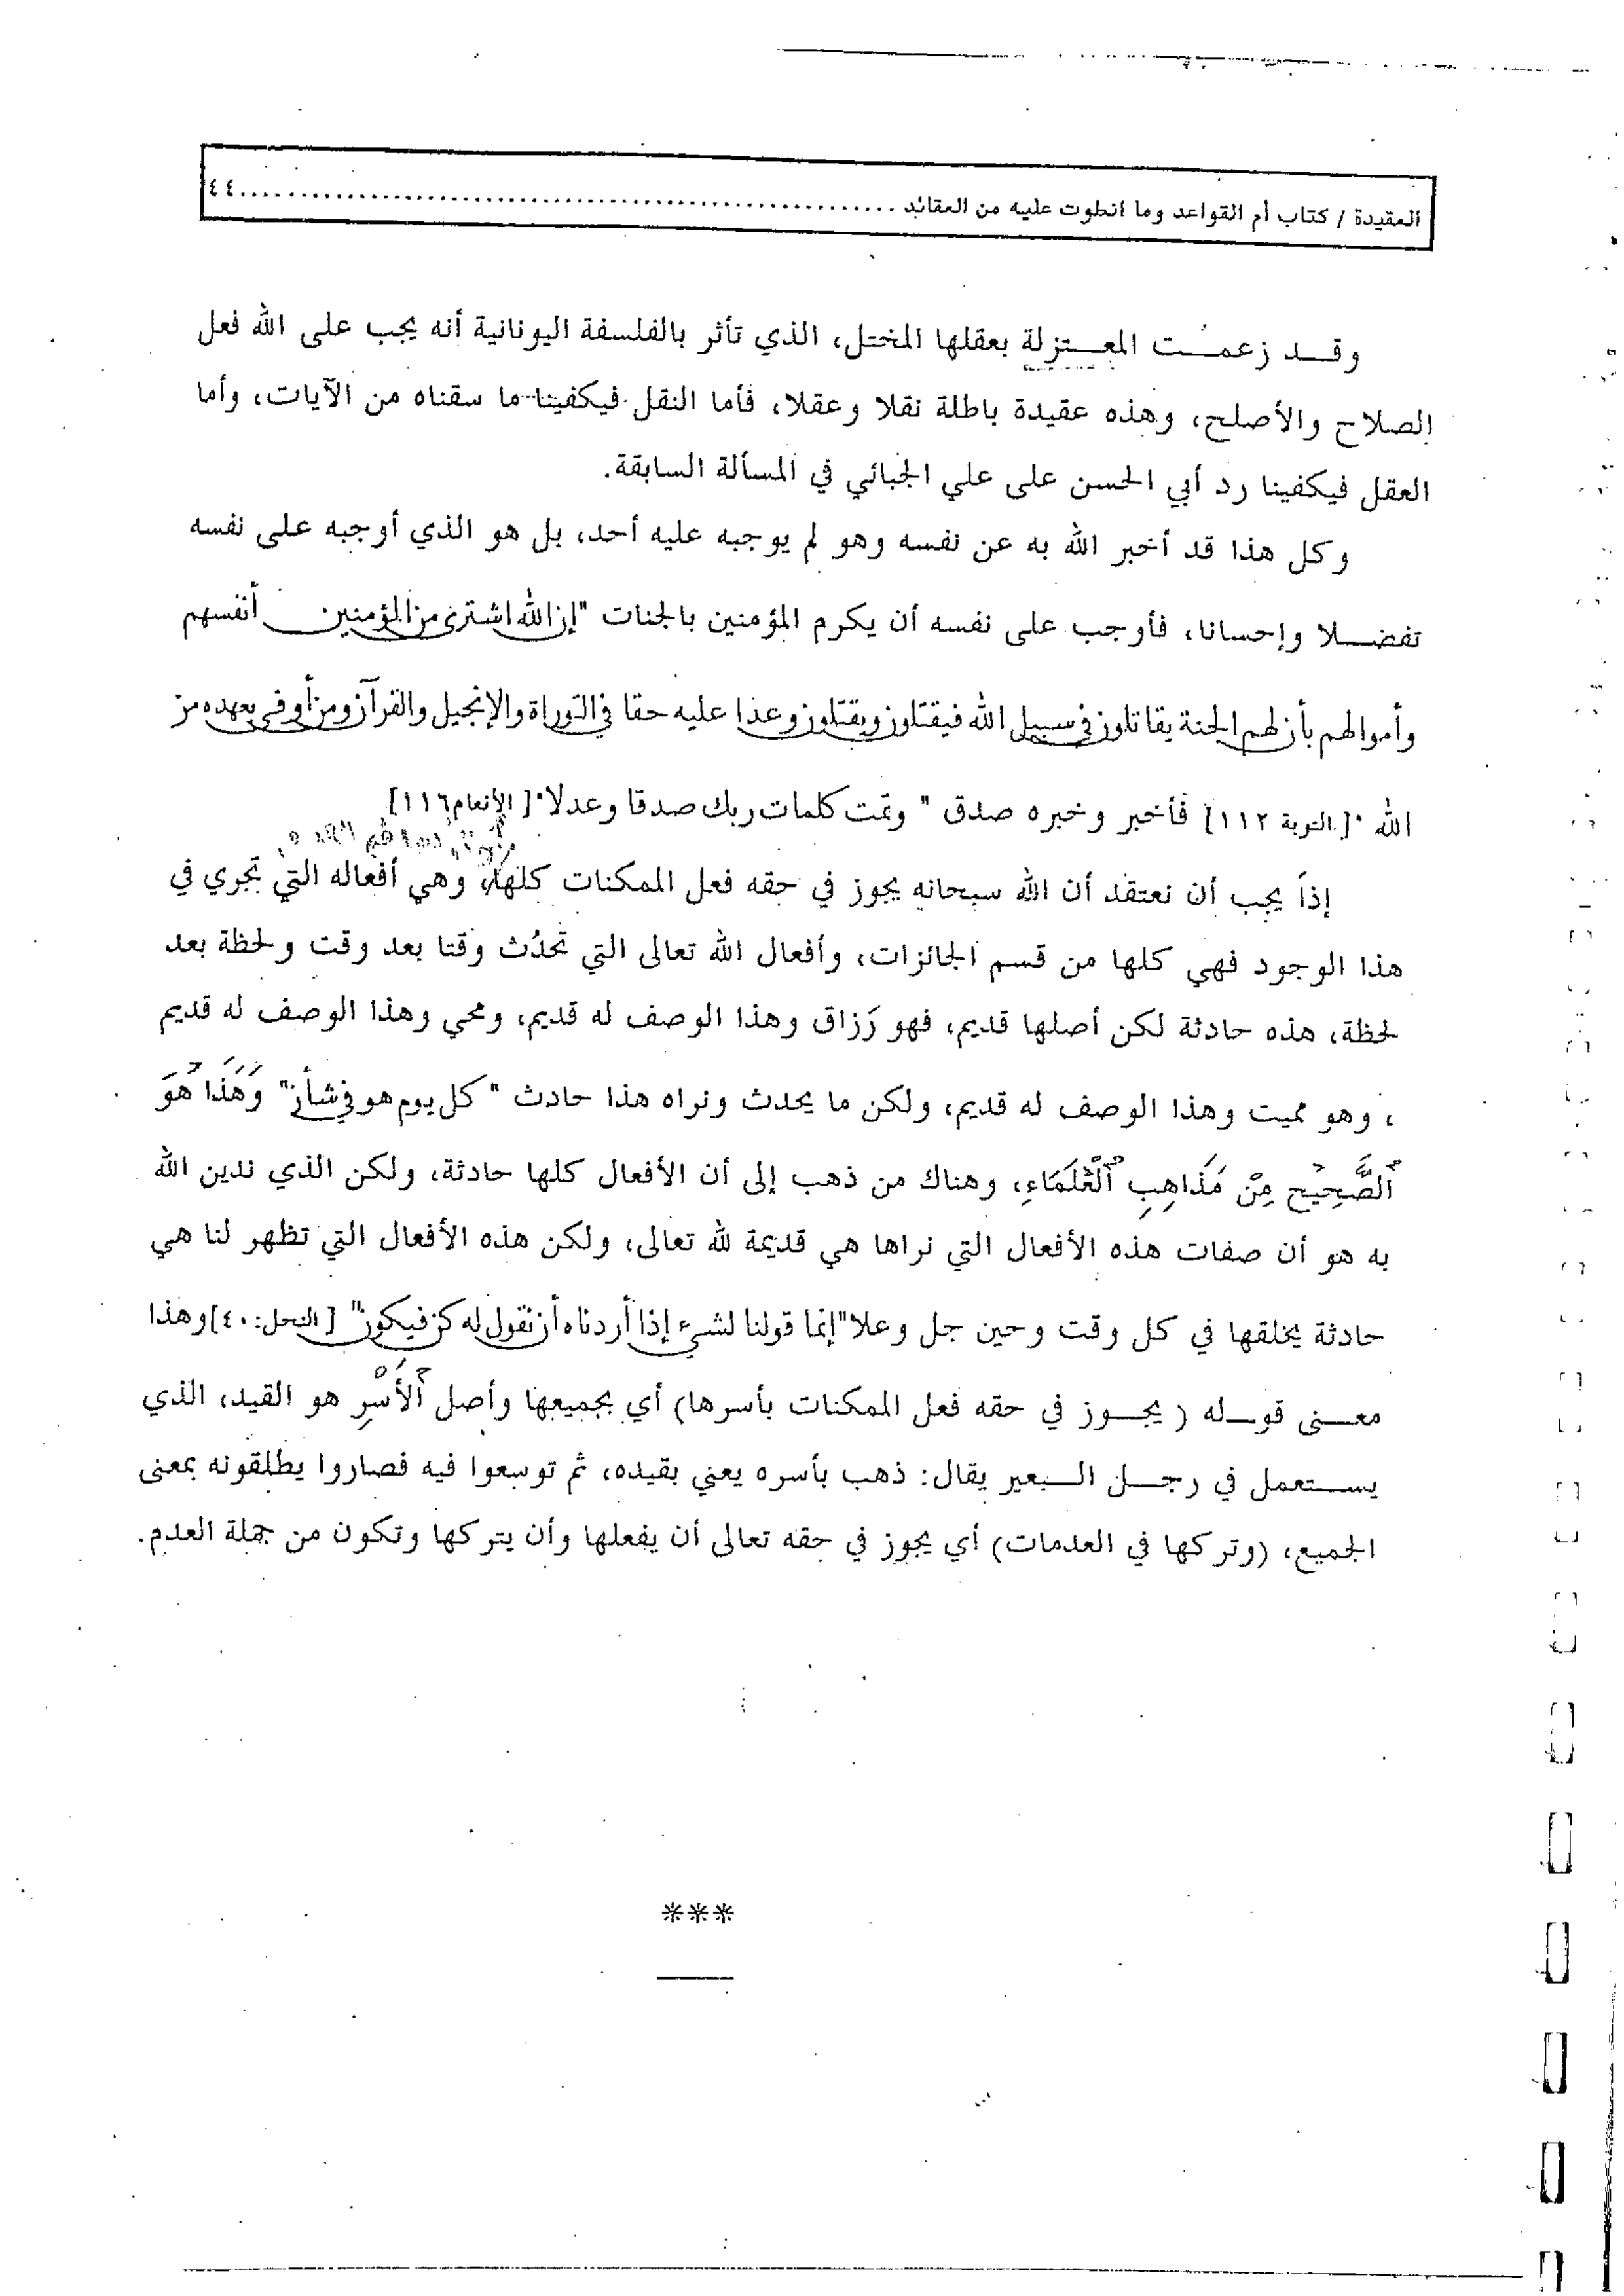 العقيدة / كتاب أم القواعد وما انطوت عليه من العقائد ..........................................................٤٤
وقد زعمت المعتزلة بعقلها المختل، الذي تأثر بالفلسفة اليونانية أنه يجب على الله فعل
الصلاح والأصلح، وهذه عقيدة باطلة نقلا وعقلا، فأما النقل فيكفينا ما سقناه من الآيات، وأما
العقل فيكفينا رد أبي الحسن على علي الجبائي في المسألة السابقة.
وكل هذا قد أخبر الله به عن نفسه وهو لم يوجبه عليه أحد، بل هو الذي أوجبه على نفسه
تفضلا وإحسانا، فأوجب على نفسه أن يكرم المؤمنين بالجنات "إن الله اشترى من المؤمنين أنفسهم
وأموالهم بأن لهم الجنة يقاتلون في سبيل الله فيقتلون ويقتلون وعدا عليه حقا في التوراة والإنجيل والقرآن ومن أوفى بعهده من
الله "[التوبة ١١٢] فأخبر وخبره صدق " وتمت كلمات ربك صدقا وعدلا"[الأنعام١١٦]
إذاً يجب أن نعتقد أن الله سبحانه يجوز في حقه فعل الممكنات كلها، وهي أفعاله التي تجري في
هذا الوجود فهي كلها من قسم الجائزات، وأفعال الله تعالى التي تحدُث وقتا بعد وقت ولحظة بعد
لحظة، هذه حادثة لكن أصلها قديم، فهو رَزاق وهذا الوصف له قديم، ومحي وهذا الوصف له قديم
، وهو مميت وهذا الوصف له قديم، ولكن ما يحدث ونراه هذا حادث " كل يوم هو في شأن" وَهَذَا هُوَ
ٱلصَّحِيْح مِنْ مَذَاهِبِ ٱلْعُلَمَاءِ، وهناك من ذهب إلى أن الأفعال كلها حادثة، ولكن الذي ندين الله
به هو أن صفات هذه الأفعال التي نراها هي قديمة لله تعالى، ولكن هذه الأفعال التي تظهر لنا هي
حادثة يخلقها في كل وقت وحين جل وعلا"إنما قولنا لشيء إذا أردناه أن نقول له كن فيكون" [النحل:٤٠]وهذا
معنى قوله ( يجوز في حقه فعل الممكنات بأسرها) أي بجميعها وأصل ٱلأَسْرِ هو القيد، الذي
يستعمل في رجل البعير يقال: ذهب بأسره يعني بقيده، ثم توسعوا فيه فصاروا يطلقونه بمعنى
الجميع، (وتركها في العدمات) أي يجوز في حقه تعالى أن يفعلها وأن يتركها وتكون من جملة العدم.
***